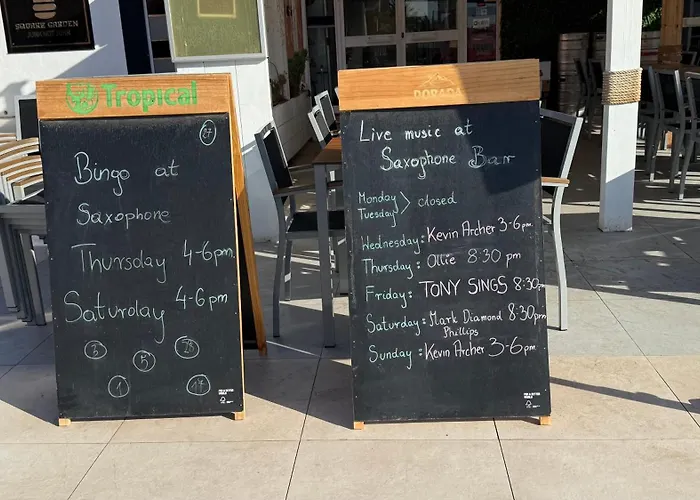 SQUARE GARDEN
Tropical
27
Bingo at
Saxophone
Thursday 4-6pm.
Saturday 4-6pm
3 5 25
1 17
DORADA
Live music at
Saxophone Bar
Monday
Tuesday > closed
Wednesday: Kevin Archer 3-6pm.
Thursday: Ollie 8:30 pm
Friday: TONY SINGS 8:30pm
Saturday: Mark Diamond 8:30pm
Phillips
Sunday: Kevin Archer 3-6pm